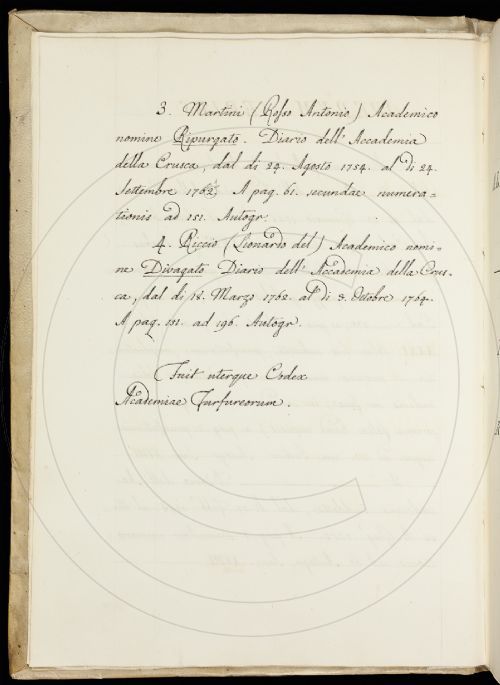 3. Martini (Rosso Antonio) Academico
nomine Ripurgato. Diario dell' Accademia
della Crusca, dal di 24. Agosto 1754. al di 24.
Settembre 1762, A pag. 61. secundae numera=
tionis ad 151. Autogr.
4. Riccio (Lionardo del) Academico nomi=
ne Divagato Diario dell' Accademia della Crus=
ca, dal di 18. Marzo 1762. al di 3. Octobre 1764.
A pag. 151. ad 196. Autogr.
Fuit uterque Codex
Academiae Furfureorum.